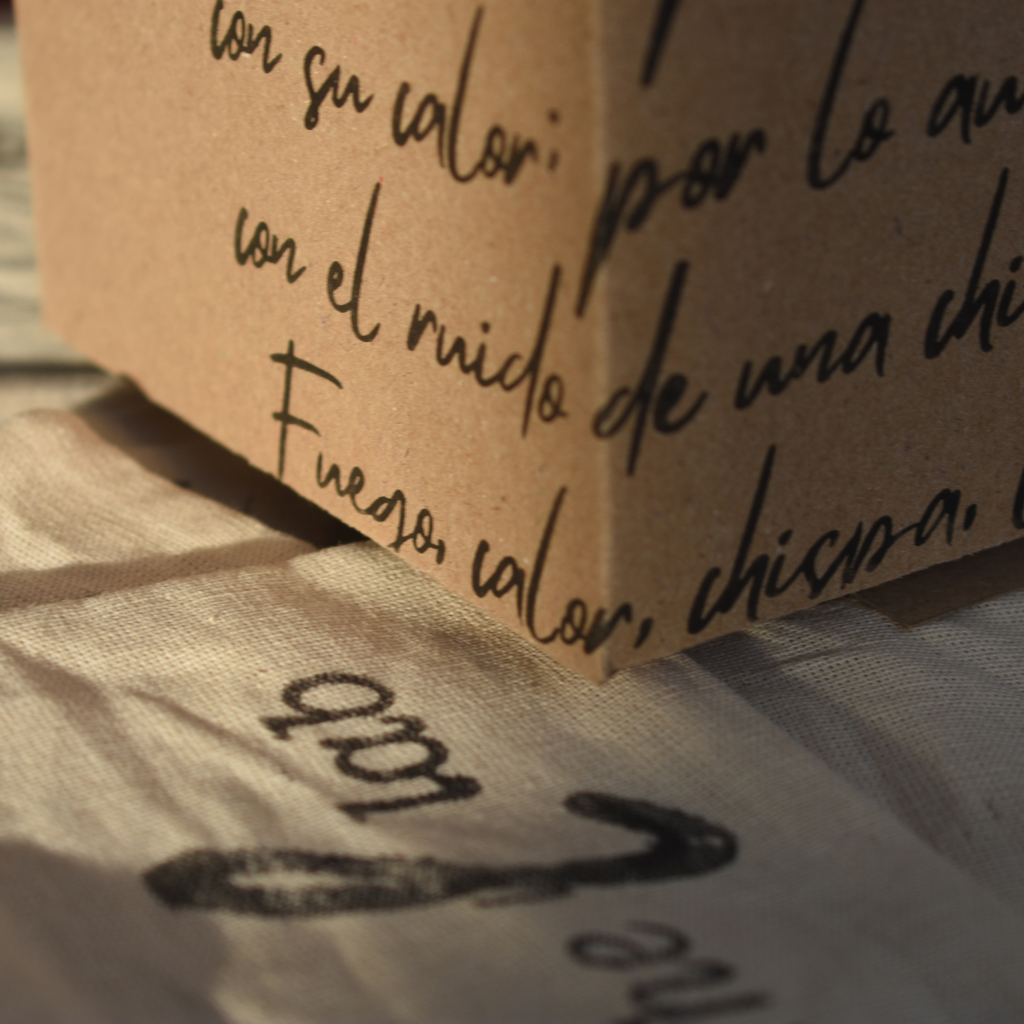 con su calor; por lo
con el ruido de una
Fuego, calor, chispa,
para